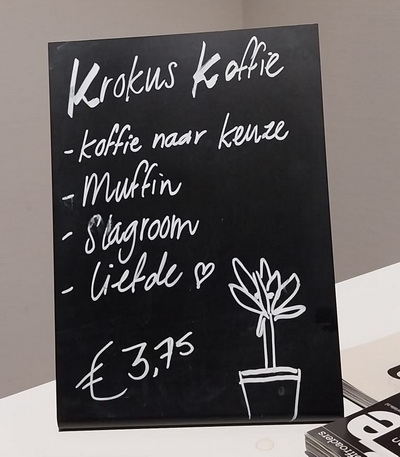 Krokus Koffie
- koffie naar keuze
- Muffin
- Slagroom
- liefde ♡
€ 3,75